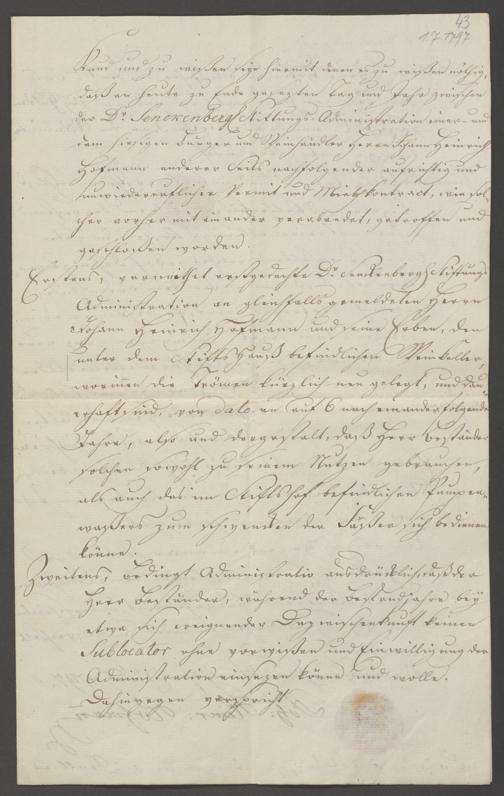 43
1.7.1797
Kund und zu wissen seye hiermit denen es zu wissen nöthig,
daß an heute zu Ende gesezten Tag und Jahr zwischen
der Dr. Senckenbergs. Stiftungs Administration einer- und
dem hiesigen Burger und Weinhändler Herrn Johann Heinrich
Hofmann anderer Seits nachfolgender aufrichtig und
unwiederruflicher Vermiet und Mieth Contract, wie sol-
cher vorher mit einander verabredet, getroffen und
geschlossen worden.
Erstens, vermiethet erstgedachte Dr. Senckenbergs. Stiftungs
Administration an gleichfalls gemeldeten Herrn
Johann Heinrich Hofmann und seine Erben, den
unter dem Stifts Hauß befindlichen Weinkeller,
worinnen die Trömen kürzlich neu gelegt, und dau-
erhaft sind, von dato an auf 6 nach einander folgende
Jahre, also und dergestalt, daß Herr Beständer
solchen sowohl zu seinem Nutzen gebrauchen,
als auch des im Stiftshof befindlichen Pumpen-
wassers zum schwencken der Fässer sich bedienen
könne.
Zweitens, bedingt Administratio ausdrücklich, daß der
Herr Beständer, während der Bestandjahre bey
etwa sich ereignender Dazwischenkunft keinen
Sublocator ohne vorwissen und Einwilligung der
Administration einsezen könne und wolle.
Dahingegen verspricht